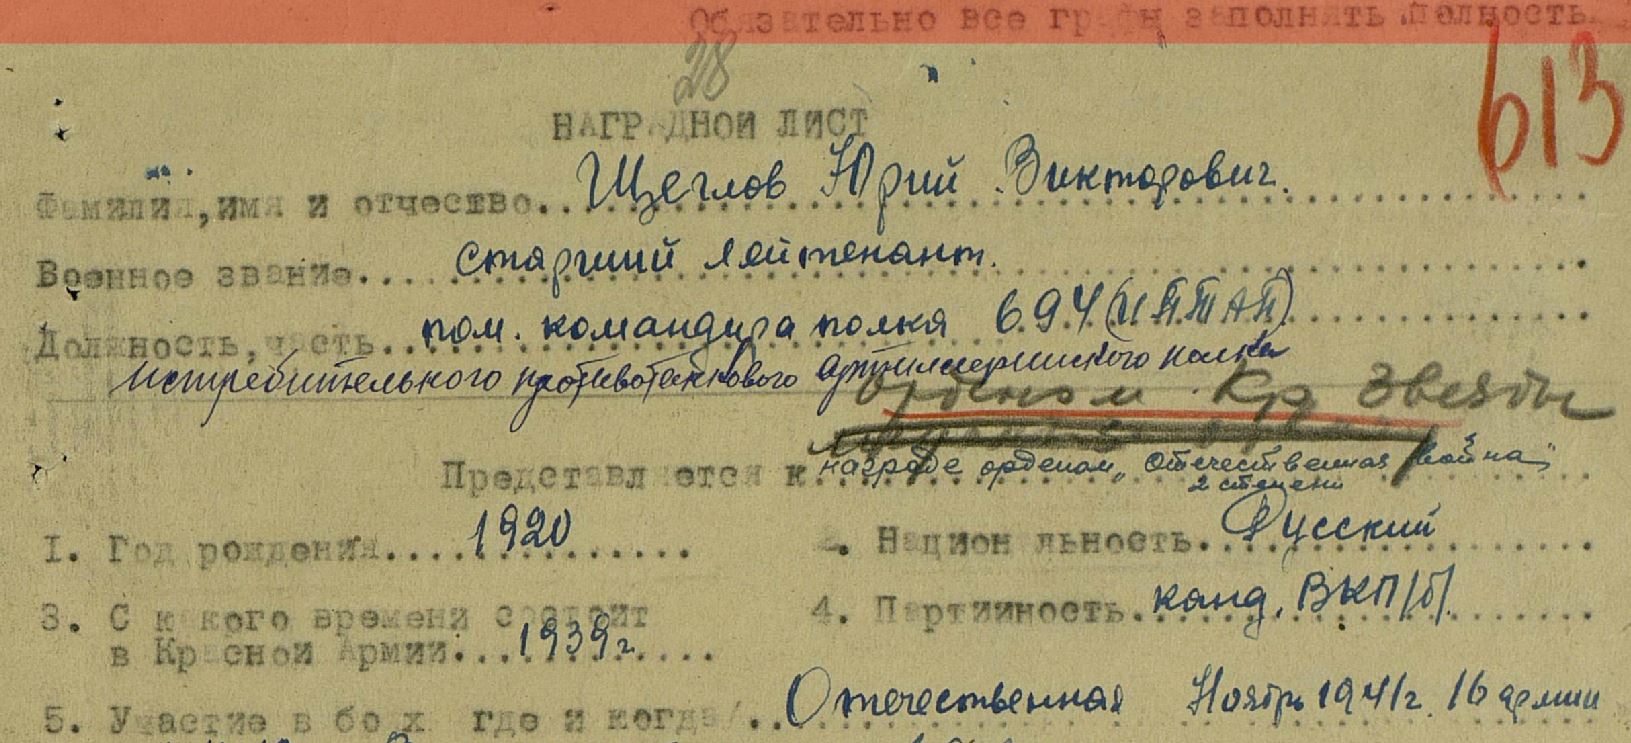 Обязательно все графы заполнять полность
28
613
НАГРАДНОЙ ЛИСТ
Фамилия, имя и отчество... Щеглов Юрий Викторович.
Военное звание... старший лейтенант.
Должность, часть... пом. командира полка 694 (ИПТАП)
истребительного противотанкового артиллерийского полка
орденом Кр Звезды
Представляется к... награде орденом „Отечественная война"
2 степени
1. Год рождения... 1920
2. Национальность... Русский
3. С какого времени состоит
в Красной Армии... 1939г.
4. Партийность... канд. ВКП/б/.
5. Участие в боях где и когда/... Отечественная Ноябрь 1941г. 16 армии